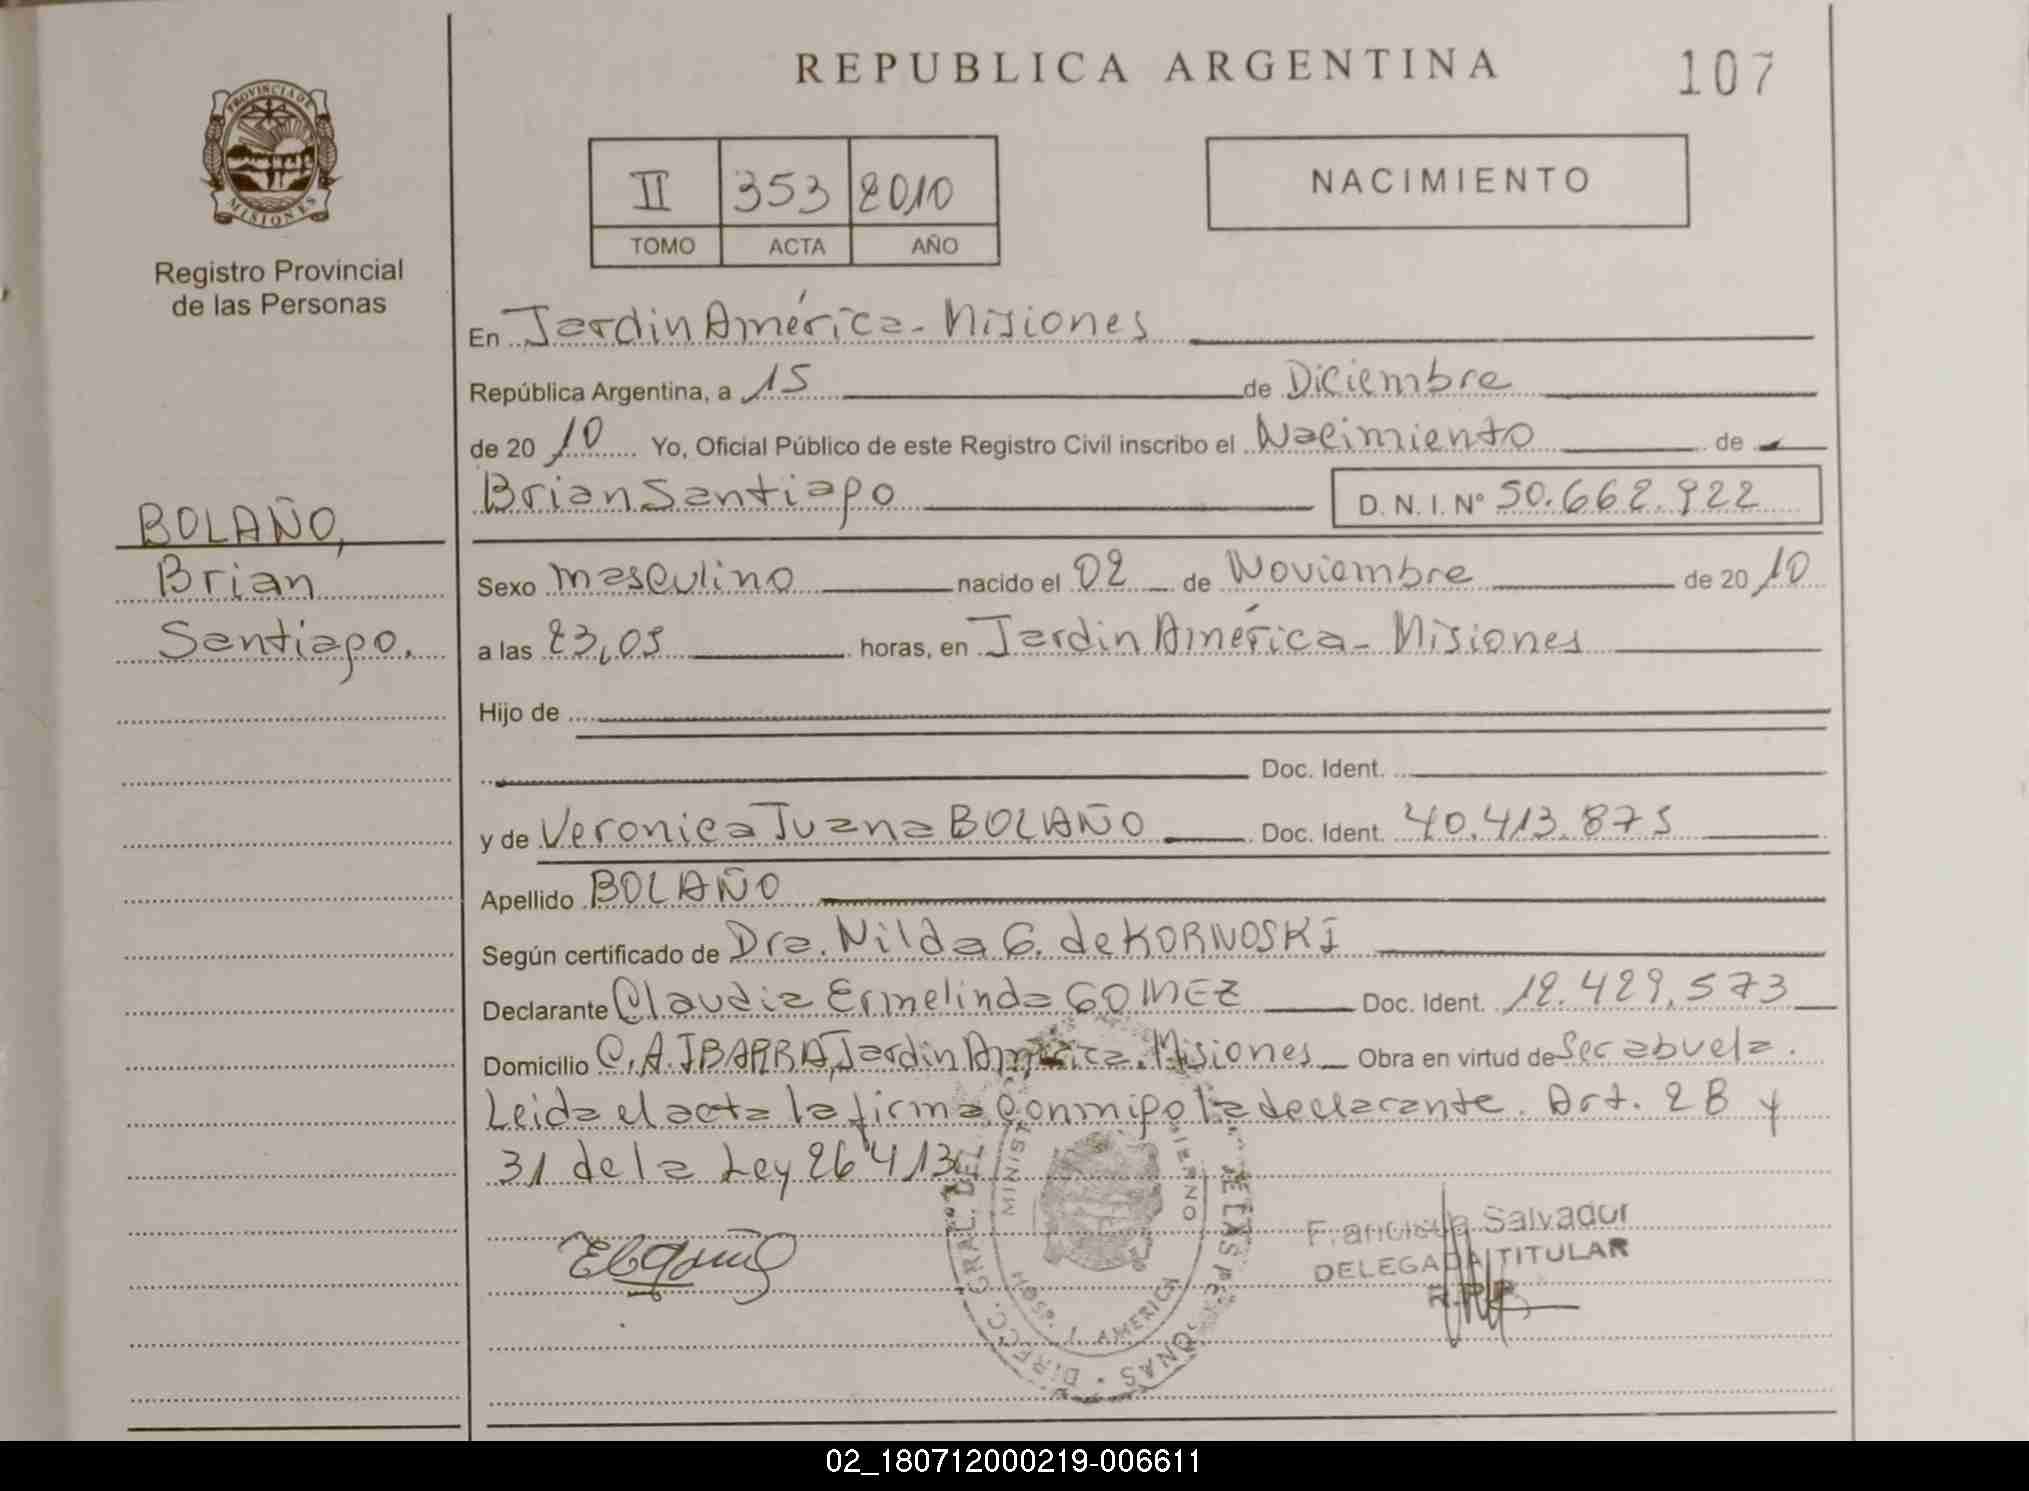 REPUBLICA ARGENTINA
107
PROVINCIA DE
MISIONES
Registro Provincial
de las Personas
II 353 2010
TOMO ACTA AÑO
NACIMIENTO
En Jardin América - Misiones
República Argentina, a 15 de Diciembre
de 20 10 Yo, Oficial Público de este Registro Civil inscribo el Nacimiento de
Brian Santiago D. N. I. Nº 50.662.922
BOLAÑO,
Brian
Santiago.
Sexo masculino nacido el 02 de Noviembre de 20 10
a las 23,05 horas, en Jardin América - Misiones
Hijo de
Doc. Ident.
y de Veronica Juana BOLAÑO Doc. Ident. 40.413.875
Apellido BOLAÑO
Según certificado de Dra. Nilda G. de KORNOSKI
Declarante Claudia Ermelinda GOMEZ Doc. Ident. 12.429.573
Domicilio C. A. IBARRA, Jardin América. Misiones Obra en virtud de Ser abuela.
Leida el acta la firma conmigo la declarante. Art. 28 y
31 de la Ley 26413
Salvador
DELEGADA TITULAR
R.P.P.
DIRECC. GRAL. DEL
AMERICA
02_180712000219-006611